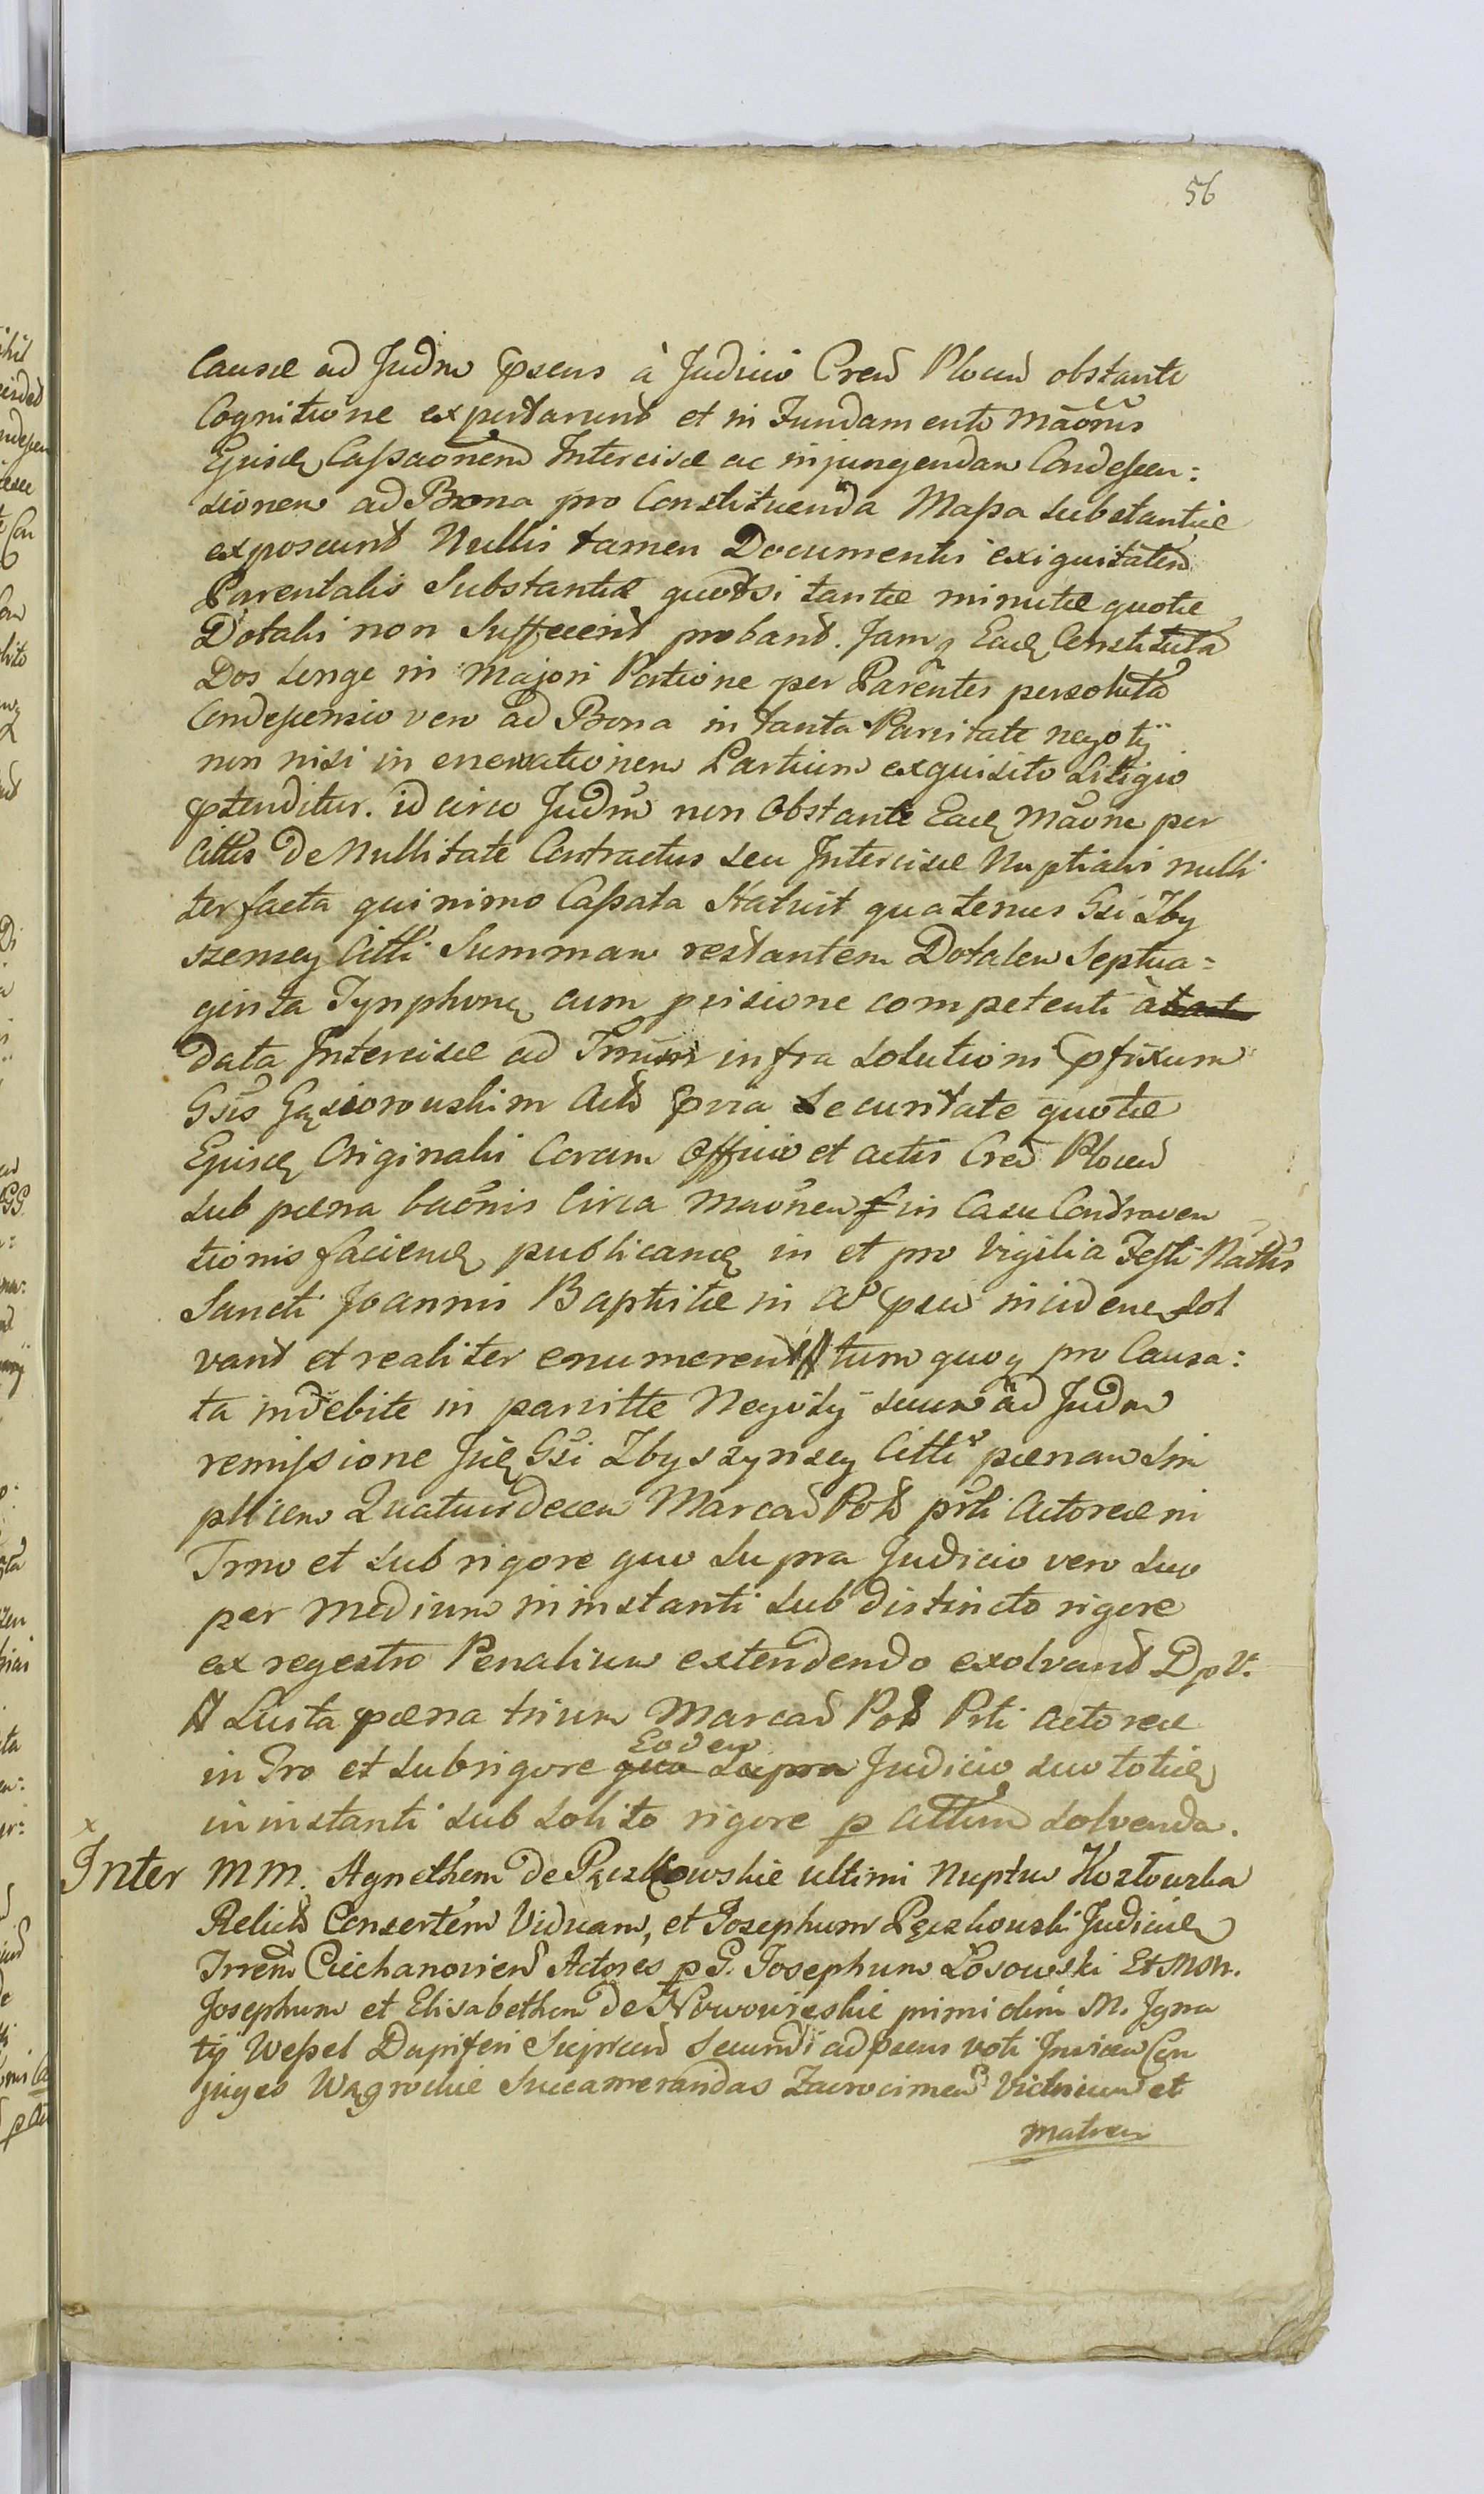 56
Causæ ad Judm pseus à Judicio Cren Plocen obstante
Cognitione expectarunt et in Fundamento Maonis
Ejusd Cassaonem Intercisæ ac injungendam Condescen:
sionem ad Bona pro Constituenda Massa substantiæ
exposcunt Nullis tamen Documentis exiguitatem
Parentalis Substantiæ quodsi tantæ minutæ quotæ
Dotali non Suffecerit probant. Jamq Ead Constituta
Dos longe in Majori Portione per Parentes persoluta
Condescensio vero ad Bona in tanta Parvitate negotij
non nisi in enervationem Partium exquisito Litigio
ptenditur. idcirco Judm non Obstante Ead Maone per
Cittos De Nullitate Contractus seu Intercisæ Nuptialis nulli
ter facta quinimo Cassata Statuit quatenus Gsi Zby
szenscy Citti Summam restantem Dotalem Septua=
ginta Tynphonum cum pvisione competenti à
Data Intercisæ ad Trnum infra Solutioni pfixum
Gsis Gąsiorowskim Act pvia Securitate quotæ
Ejusd Originalis Coram Officio et Actis Cren Plocen
sub pæna baonis Circa Maonem in Casu Contraven
tionis faciend publicand in et pro Vigilia Festi Nattis
Sancti Joannis Baptistæ in Ao psen inciden Sol
vant et realiter enumerent tum quoq pro Causa:
ta indebite in parvitte Negotij suum ad Judm
remissione Jid Gsi Zbyszynscy Citti pænam Sim
plicem Quatuordecem Marcar Pol prti Actoreæ in
Trno et sub rigore quo supra Judicio vero suo
per Medium in instanti sub distincto rigore
ex regestro Penalium extendendo exolvant D p V.
Lucta pæna trium Marcar Pol Prti Actoreæ
Eodem
in Tro et sub rigore quo supra Judicio suo totid
in instanti sub solito rigore p Cittum solvenda.
x
Inter MM. Agnethem de Pęczkowskie ultimi Nuptus Kozłowska
Relict Consortem Viduam, et Josephum Pęczkowski Judicid
Trren Ciechanovien Actores p G. Josephum Łosowski Et MM.
Josephum et Elisabetham de Nowowieskie primi olim M. Igna
tij Wessel Dapiferi secundi ad psens voti Invicem Con
juges Wągrockie Succamerandas Zacrocimen Victricum et
Matrem